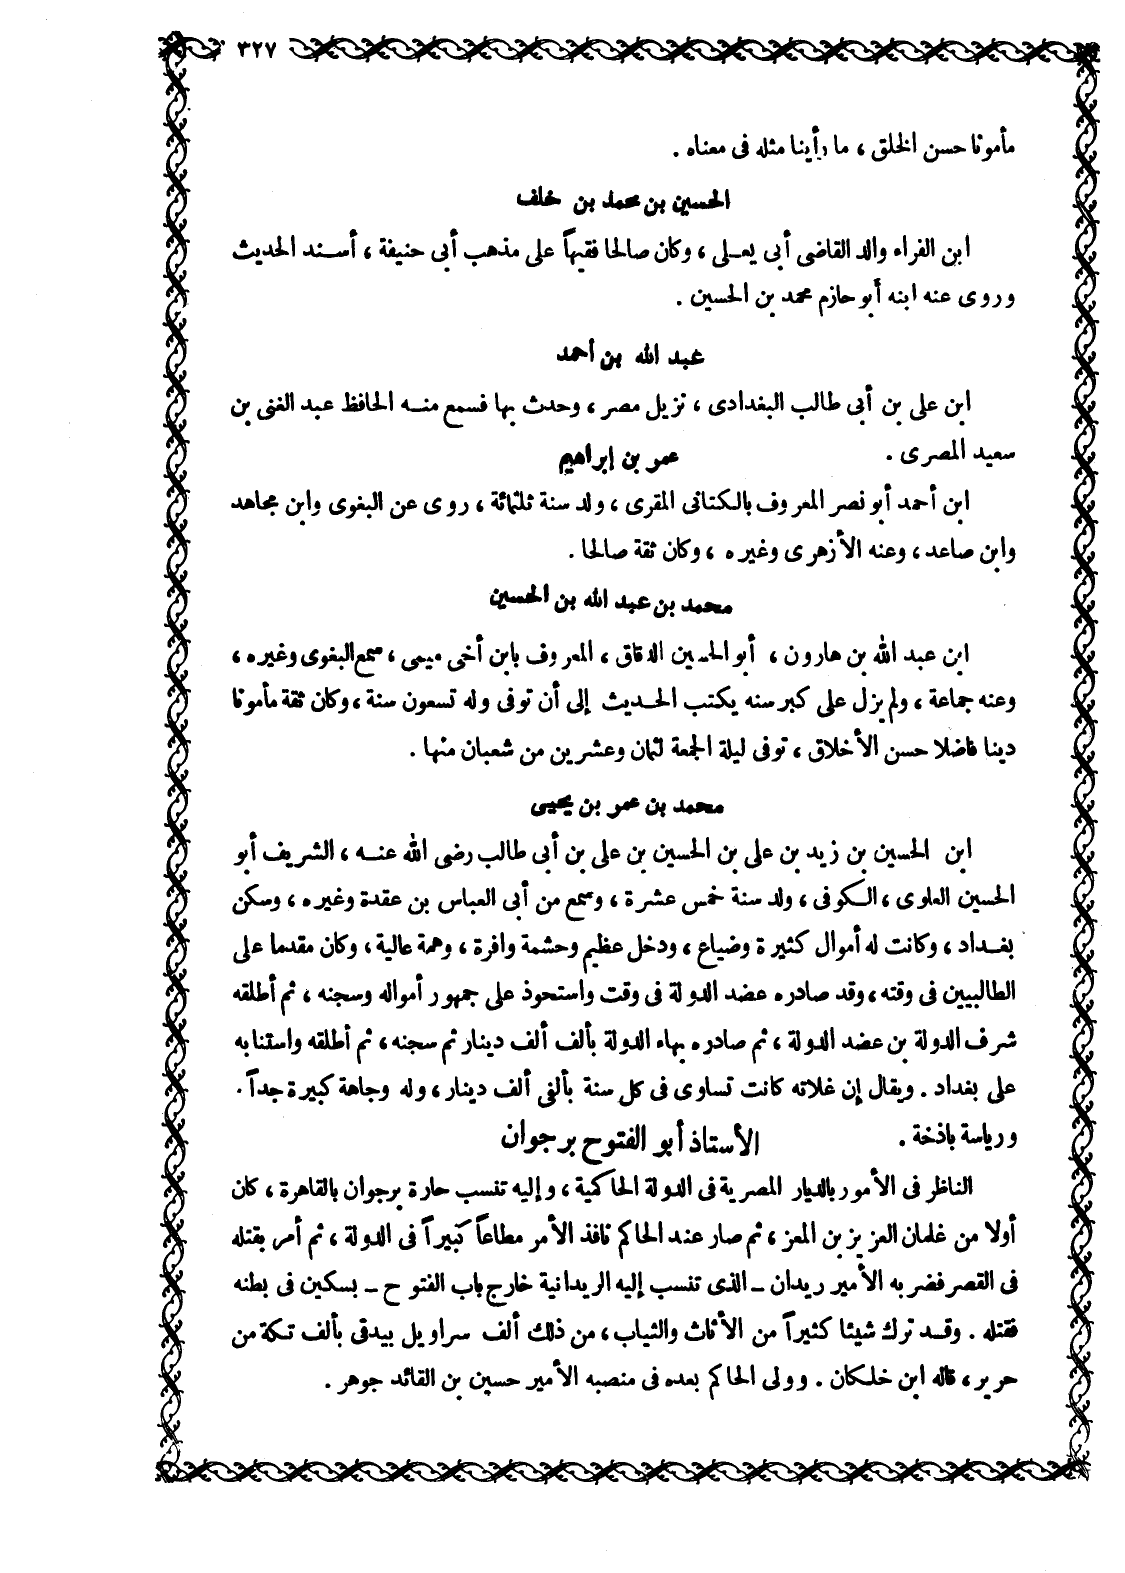 ٣٢٧
مأمونا حسن الخلق ، ما رأينا مثله فى معناه .
الحسين بن محمد بن خلف
ابن الفراء والد القاضى أبى يعلى ، وكان صالحا فقيهاً على مذهب أبى حنيفة ، أسند الحديث
وروى عنه ابنه أبو حازم محمد بن الحسين .
عبد الله بن أحمد
ابن على بن أبى طالب البغدادى ، نزيل مصر ، وحدث بها فسمع منه الحافظ عبد الغنى بن
سعيد المصرى .
عمر بن إبراهيم
ابن أحمد أبو نصر المعروف بالكتانى المقرى ، ولد سنة ثلثمائة ، روى عن البغوى وابن مجاهد
وابن صاعد ، وعنه الأزهرى وغيره ، وكان ثقة صالحا .
محمد بن عبد الله بن الحسين
ابن عبد الله بن هارون ، أبو الحسين الدقاق ، المعروف بابن أخى ميمى ، سمع البغوى وغيره ،
وعنه جماعة ، ولم يزل على كبر سنه يكتب الحديث إلى أن توفى وله تسعون سنة ، وكان ثقة مأمونا
دينا فاضلا حسن الأخلاق ، توفى ليلة الجمعة لثمان وعشرين من شعبان منها .
محمد بن عمر بن يحيى
ابن الحسين بن زيد بن على بن الحسين بن على بن أبى طالب رضى الله عنه ، الشريف أبو
الحسين العلوى ، الكوفى ، ولد سنة خمس عشرة ، وسمع من أبى العباس بن عقدة وغيره ، وسكن
بغداد ، وكانت له أموال كثيرة وضياع ، ودخل عظيم وحشمة وافرة ، وهمة عالية ، وكان مقدما على
الطالبيين فى وقته ، وقد صادره عضد الدولة فى وقت واستحوذ على جمهور أمواله وسجنه ، ثم أطلقه
شرف الدولة بن عضد الدولة ، ثم صادره بهاء الدولة بألف ألف دينار ثم سجنه ، ثم أطلقه واستنابه
على بغداد . ويقال إن غلاته كانت تساوى فى كل سنة بألفى ألف دينار ، وله وجاهة كبيرة جداً .
ورياسة باذخة .
الأستاذ أبو الفتوح برجوان
الناظر فى الأمور بالديار المصرية فى الدولة الحاكمية ، وإليه تنسب حارة برجوان بالقاهرة ، كان
أولا من غلمان العزيز بن المعز ، ثم صار عند الحاكم نافذ الأمر مطاعاً كبيراً فى الدولة ، ثم أمر بقتله
فى القصر فضربه الأمير ريدان ــ الذى تنسب إليه الريدانية خارج باب الفتوح ــ بسكين فى بطنه
فقتله . وقد ترك شيئا كثيراً من الأثاث والثياب ، من ذلك ألف سراويل بيدقى بألف تكة من
حرير ، قاله ابن خلكان . وولى الحاكم بعده فى منصبه الأمير حسين بن القائد جوهر .